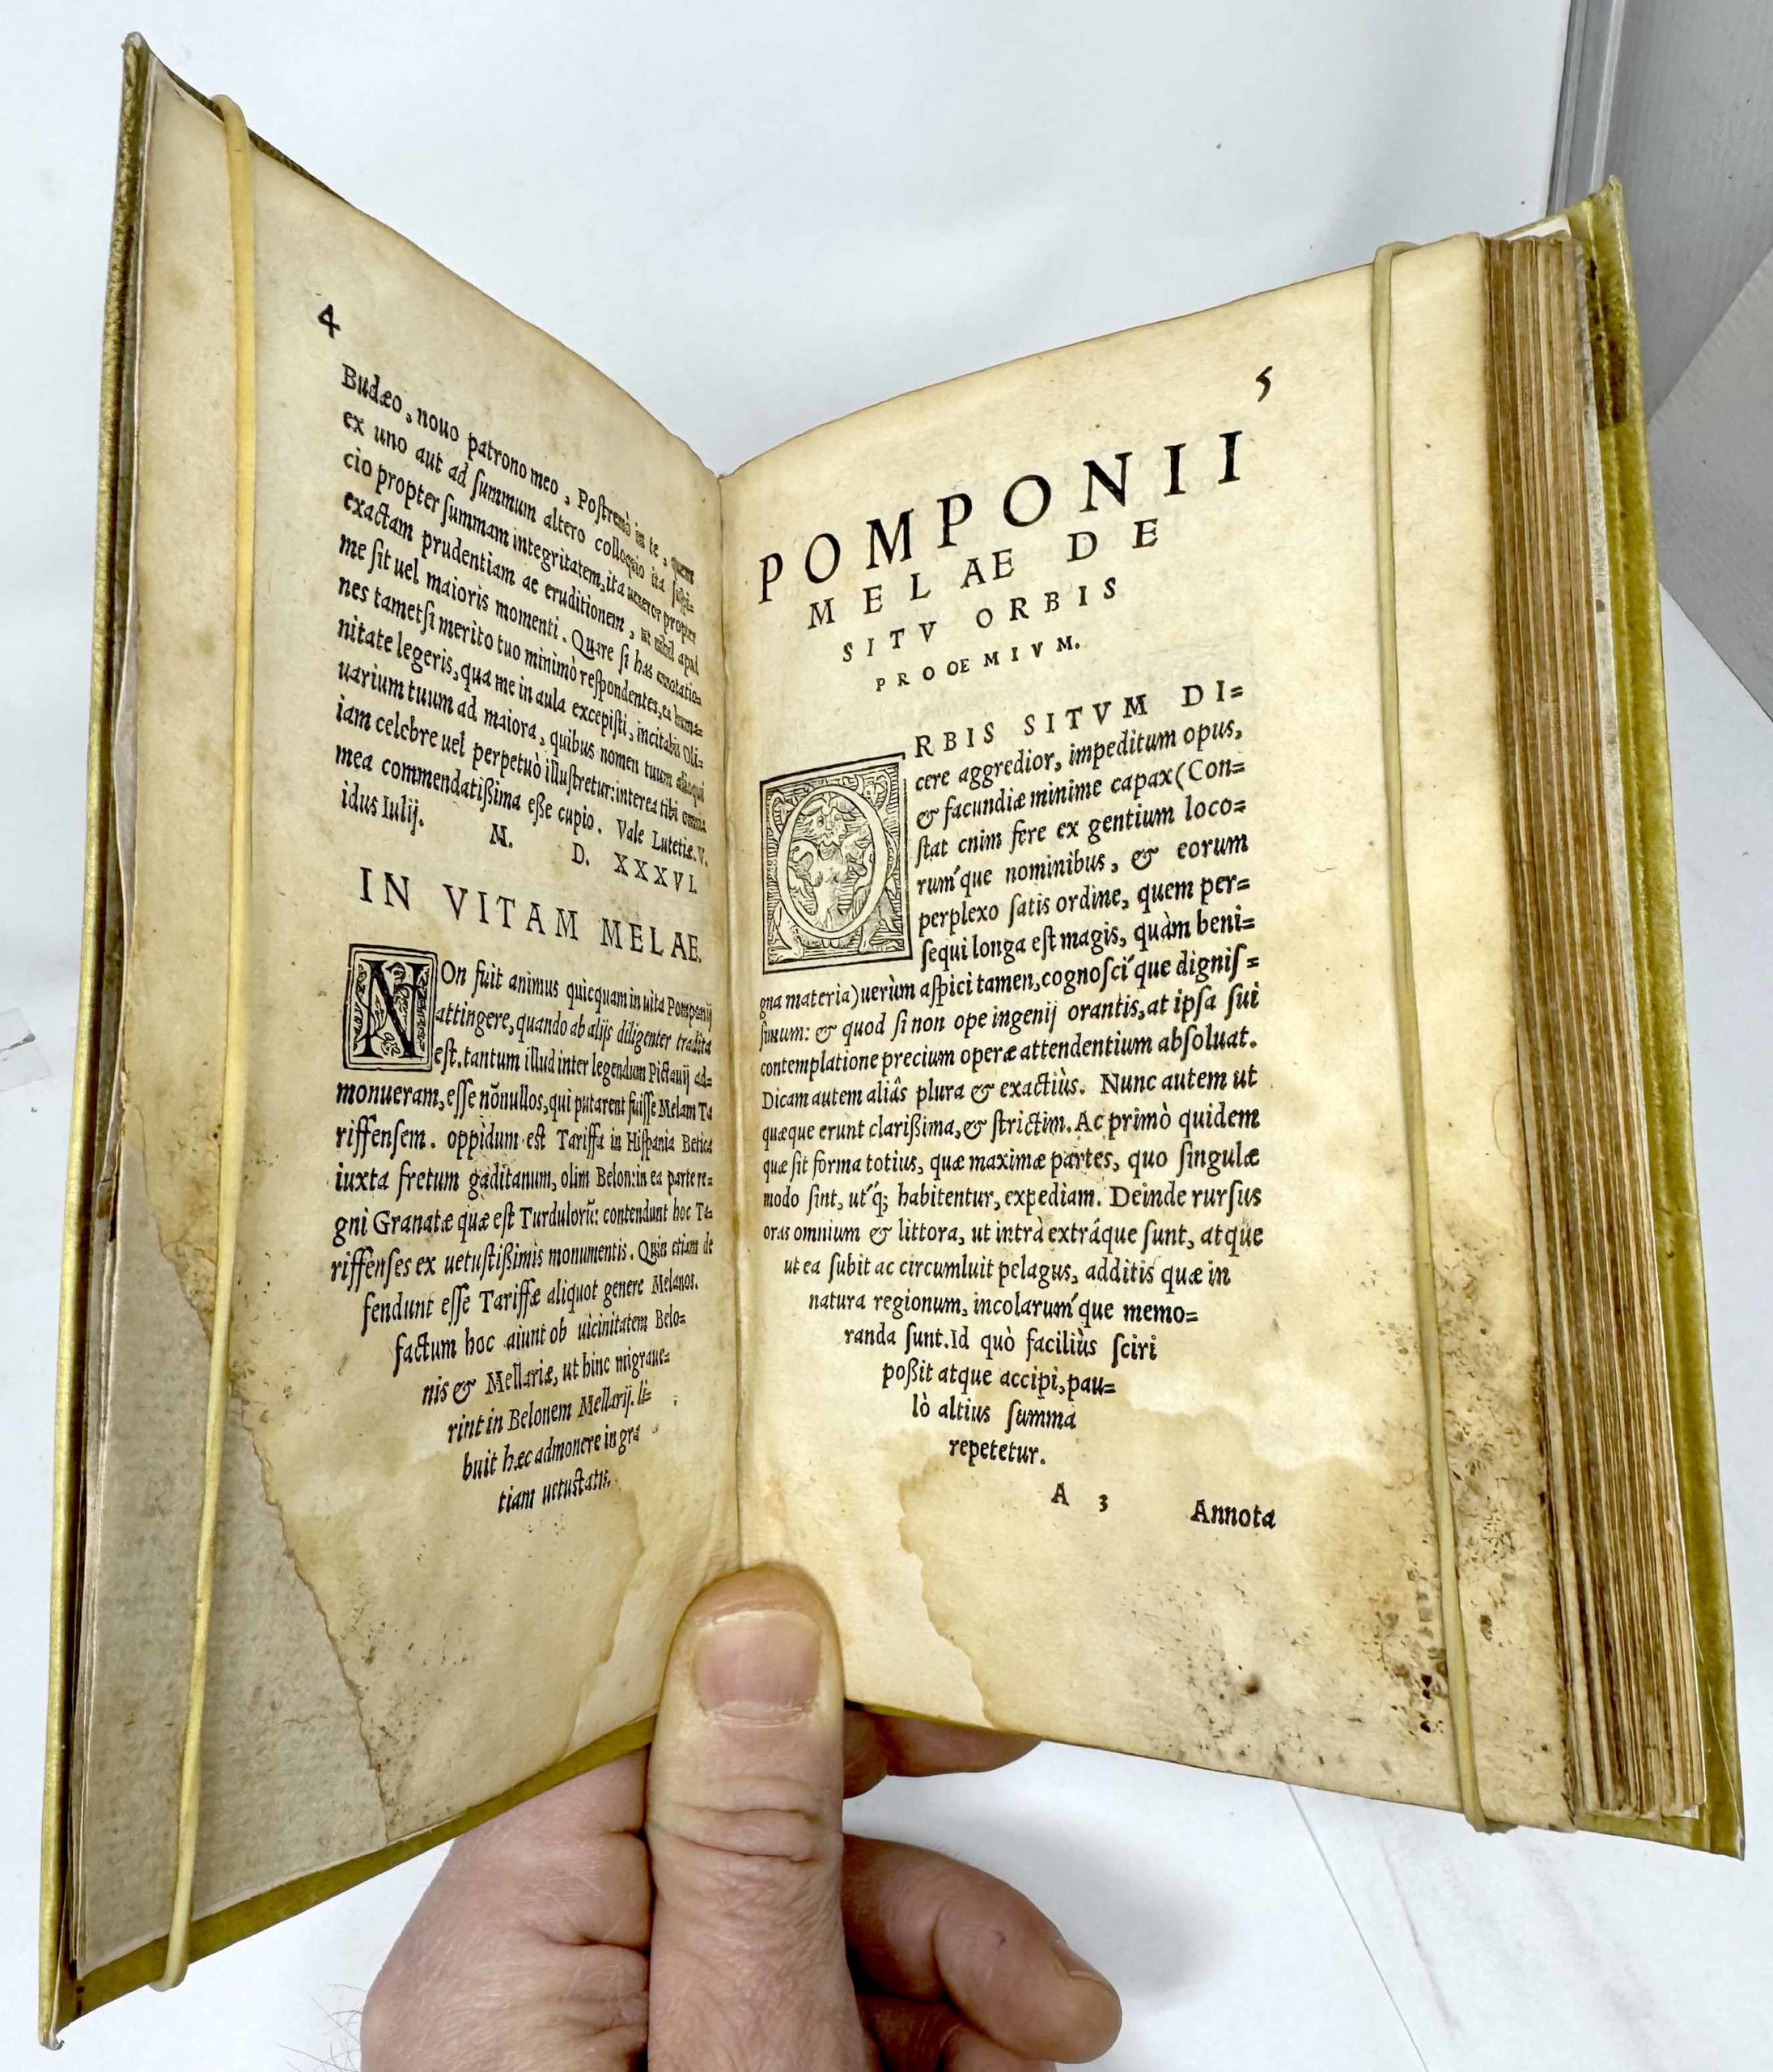 4
Budæo, nouo patrono meo, Postremò in te, quem
ex uno aut ad summum altero colloquio ita suspi-
cio propter summam integritatem, ita ueneror propter
exactam prudentiam ac eruditionem, ut nihil apud
me sit uel maioris momenti. Quare si has annotatio-
nes tametsi merito tuo minimò respondentes, ea huma-
nitate legeris, qua me in aula excepisti, incitabis Oli-
uarium tuum ad maiora, quibus nomen tuum alioqui
iam celebre uel perpetuò illustretur: interea tibi omnia
mea commendatißima esse cupio. Vale Lutetiæ. V.
idus Iulij. M. D. XXXVI.
IN VITAM MELAE.
NOn fuit animus quicquam in uita Pomponij
attingere, quando ab alijs diligenter tradita
est. tantum illud inter legendum Pictauij ad-
monueram, esse nõnullos, qui putarent fuisse Melam Ta
riffensem. oppidum est Tariffa in Hispania Betica
iuxta fretum gaditanum, olim Belon: in ea parte re-
gni Granatæ quæ est Turdulorũ: contendunt hoc Ta-
riffenses ex uetustißimis monumentis. Quin etiam de
fendunt esse Tariffæ aliquot genere Melanos.
factum hoc aiunt ob uicinitatem Belo-
nis & Mellariæ, ut hinc migraue-
rint in Belonem Mellarij. li-
buit hæc admonere in gra
tiam uetustatis.
5
POMPONII
MELAE DE
SITV ORBIS
PROOEMIVM.
ORBIS SITVM DI-
cere aggredior, impeditum opus,
& facundiæ minime capax (Con-
stat enim fere ex gentium loco-
rum´que nominibus, & eorum
perplexo satis ordine, quem per-
sequi longa est magis, quàm beni-
gna materia) uerùm aspici tamen, cognosci´que dignis-
simum: & quod si non ope ingenij orantis, at ipsa sui
contemplatione precium operæ attendentium absoluat.
Dicam autem aliâs plura & exactiùs. Nunc autem ut
quæque erunt clarißima, & strictim. Ac primò quidem
quæ sit forma totius, quæ maximæ partes, quo singulæ
modo sint, ut´q; habitentur, expediam. Deinde rursus
oras omnium & littora, ut intrà extráque sunt, atque
ut ea subit ac circumluit pelagus, additis quæ in
natura regionum, incolarum´que memo-
randa sunt. Id quò faciliùs sciri
poßit atque accipi, pau-
lò altius summa
repetetur.
A 3 Annota